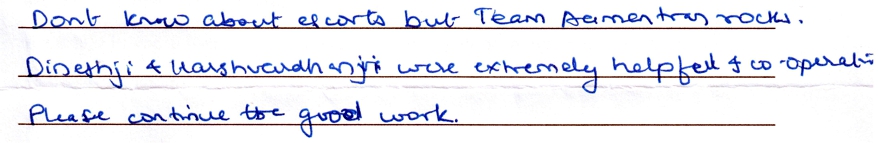 Dont know about escorts but Team Aamantran rocks.
Dineshji & Harshvardhanji were extremely helpful & co-operati
Please continue the good work.